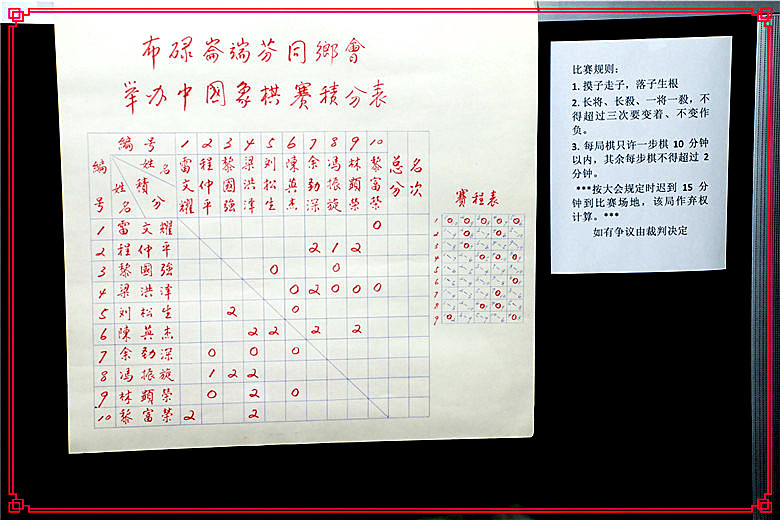 布碌崙端芬同鄉會
举办中國象棋賽積分表
編号 1 2 3 4 5 6 7 8 9 10 总分 名次
編号 姓名 積分 姓名 雷文耀 程仲平 黎國強 梁洪淳 刘松生 陳英杰 余劲深 馮振旋 林顕榮 黎富榮
1 雷文耀 0
2 程仲平 2 1 2
3 黎國強 0 0
4 梁洪淳 0 2 0 0 0
5 刘松生 2 0
6 陳英杰 2 2 2 2
7 余劲深 0 0 0
8 馮振旋 1 2 2
9 林顕榮 0 2 0
10 黎富榮 2 2
賽程表
1
2
3
4
5
6
7
8
9
比赛规则:
1. 摸子走子，落子生根
2. 长将、长殺、一将一殺，不
得超过三次要变着、不变作
负。
3. 每局棋只许一步棋 10 分钟
以内，其余每步棋不得超过 2
分钟。
***按大会规定时迟到 15 分
钟到比赛场地，该局作弃权
计算。***
如有争议由裁判决定